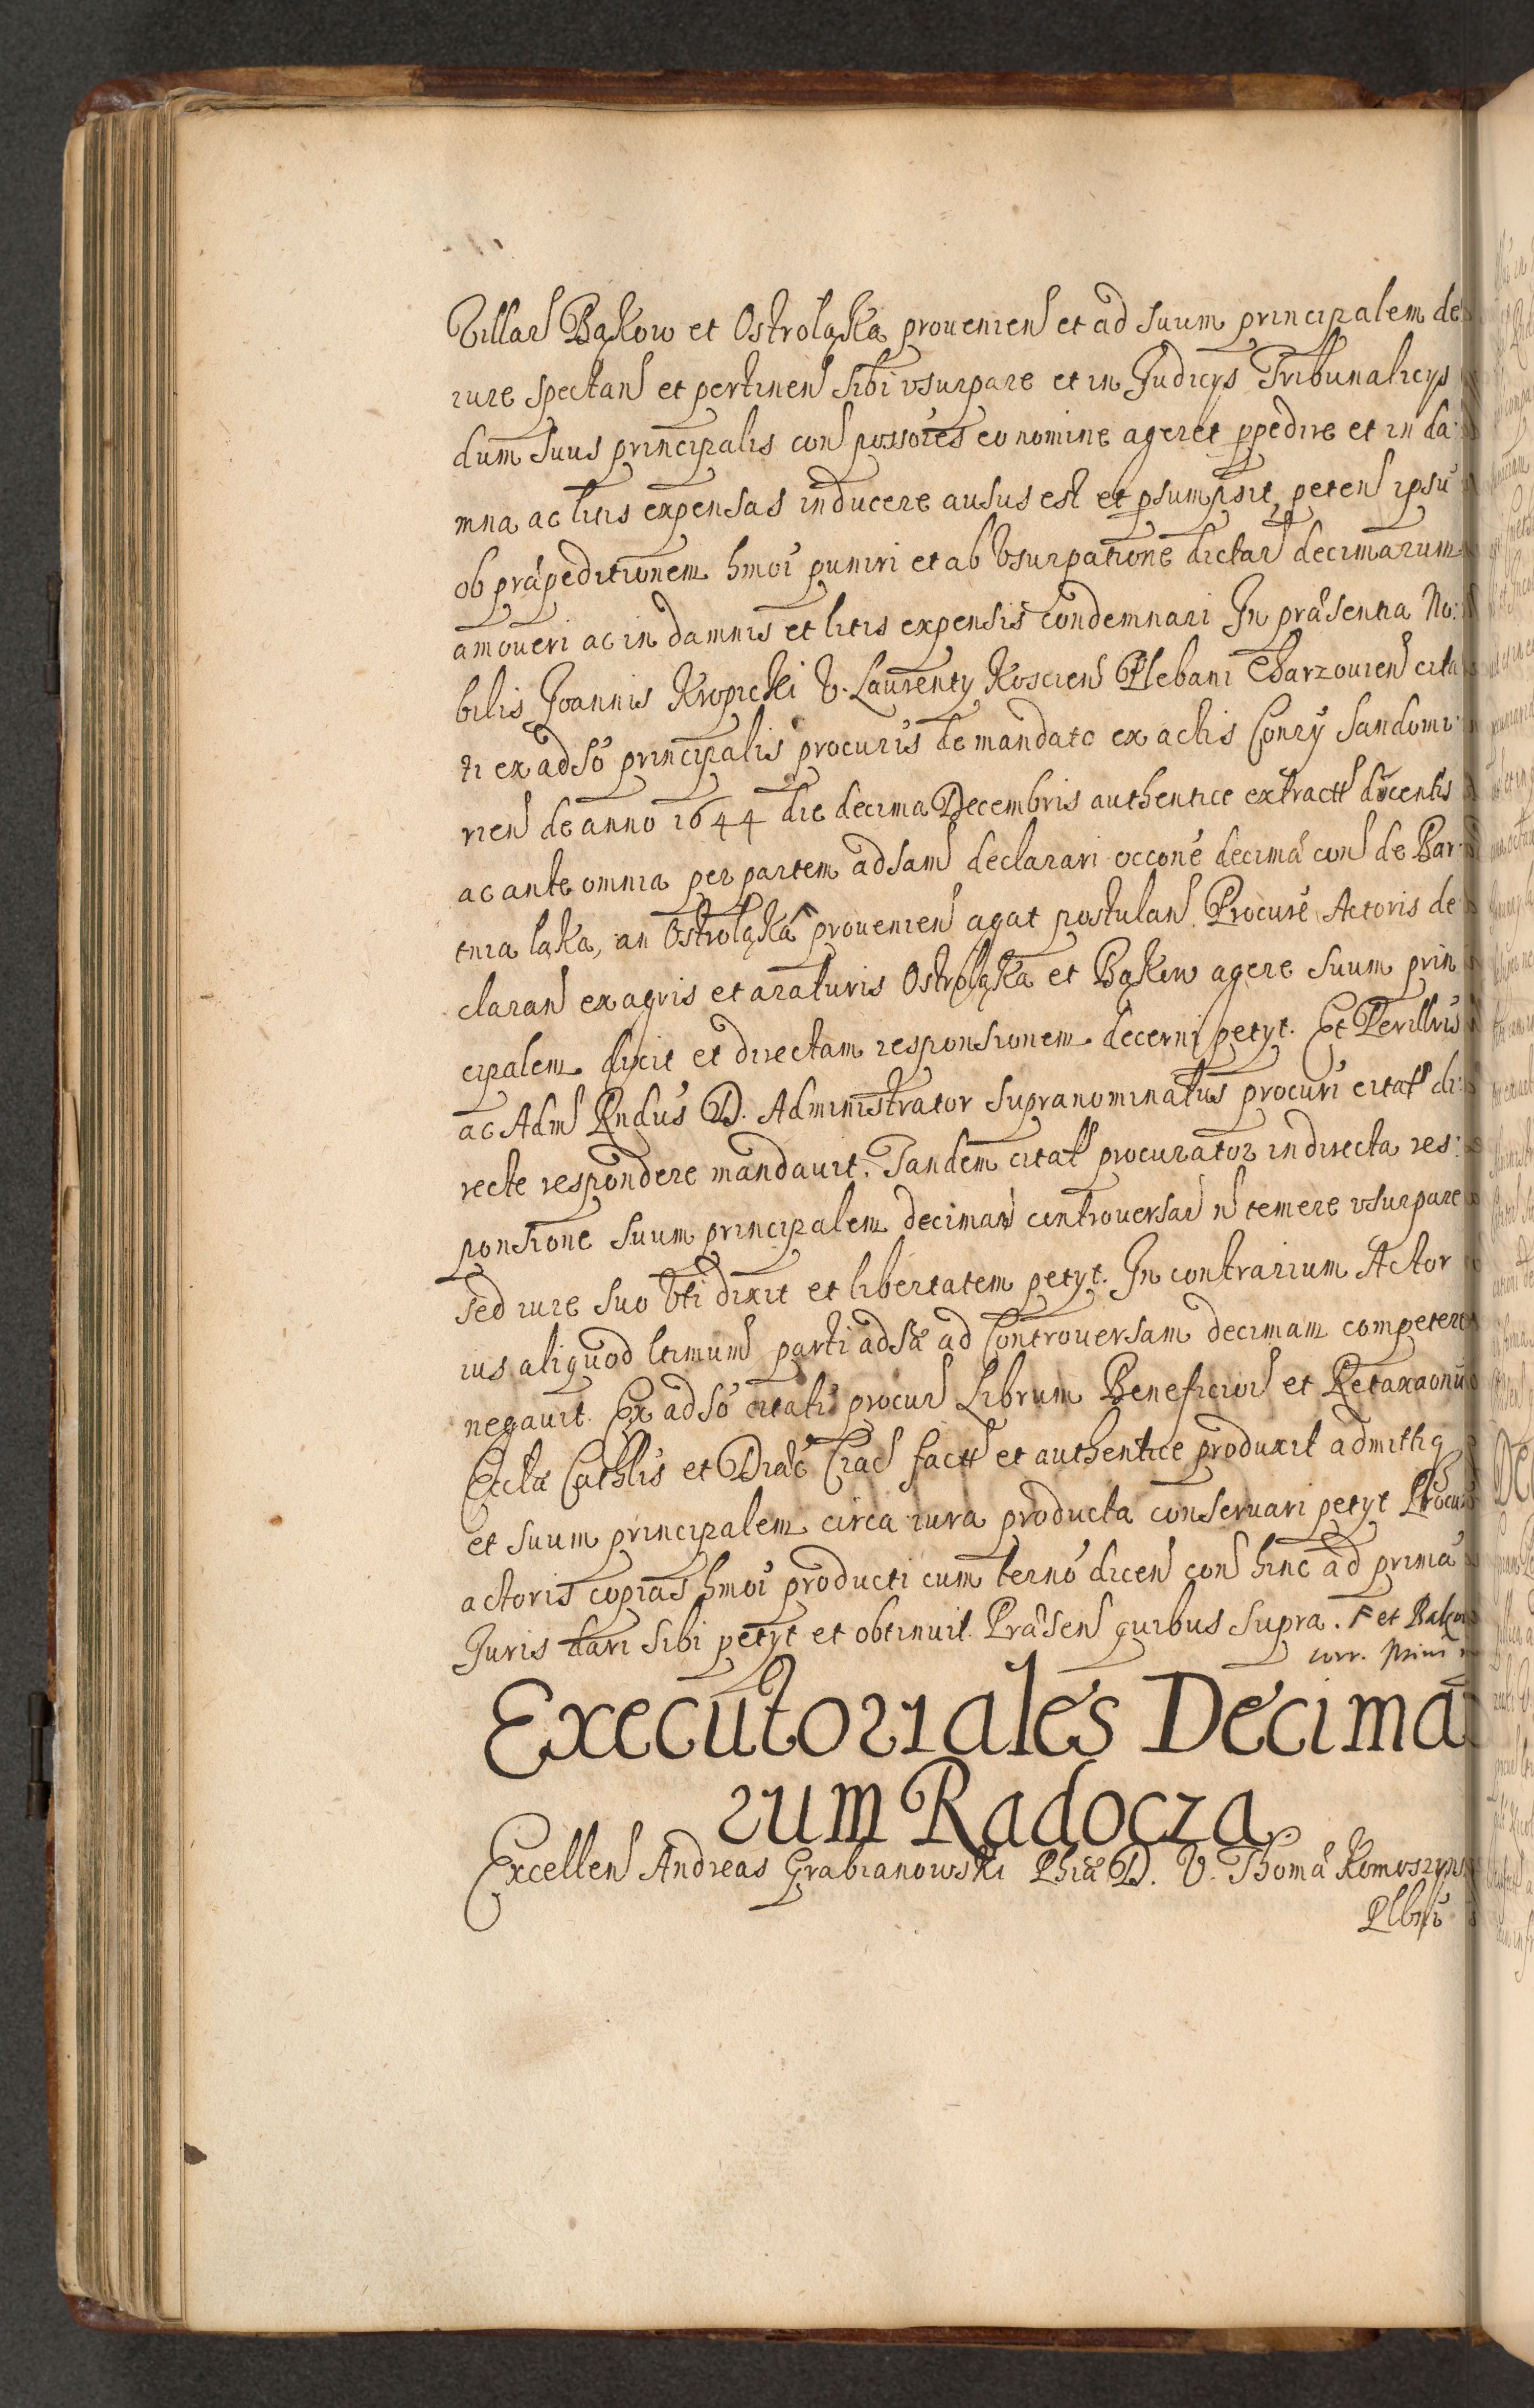 Villar Bąkow et Ostroląka prouenien et ad suum principalem de
iure spectan et pertinen sibi vsurpare et in Judicys Tribunalicys
dum suus principalis con possores eo nomine ageret ppedire et in da:
mna ac litis expensas inducere ausus est et psumpsit, peten ipsũ
ob præpeditionem hmoi puniri et ab Vsurpatione dictar decimarum
amoueri ac in damnis et litis expensis condemnari In præsentia No:
bilis Joannis Kropicki V. Laurenty Koscien Plebani Charzouien cita
ti ex adso principalis procuris de mandato ex actis Conry Sandomi:
rien de anno 1644 die decima Decembris authentice extractt docentis
ac ante omnia per partem adsam declarari occone decimæ con de Bar:
tnia laka, an Ostroląka ^ prouenien agat postulan Procure Actoris de
claran ex agris et araturis Ostroląka et Bąkow agere suum prin
cipalem dixit et directam responsionem decerni petyt. Et Perillris
ac Adm Rndus D. Administrator supranominatus procuri citat di:
recte respondere mandauit. Tandem citat procurator in directa res:
ponsione suum principalem decimam controuersam n temere vsurpare
sed iure suo Vti dixit et libertatem petyt. In contrarium Actor
ius aliquod ltimum parti adsæ ad Controuersam decimam competere
negauit. Ex adso citati procur Librum Beneficior et Retaxaonũ
Eccla Cathlis et Diæc Crac factt et authentice produxit admittiq
et suum principalem circa iura producta conseruari petyt Procur
actoris copias hmoi producti cum termo dicen con hinc ad primã
Juris dari sibi petyt et obtinuit. Præsen quibus supra. F et Bakow
corr. Prius
Executoriales Decima
rum Radocza
Excellen Andreas Grabianowski Phiæ D. V. Thomæ Komoszyns
Plbni